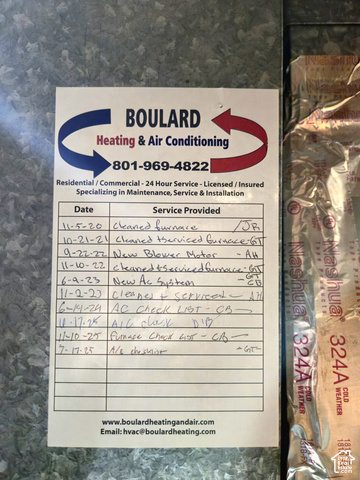 BOULARD
Heating & Air Conditioning
801-969-4822
Residential / Commercial - 24 Hour Service - Licensed / Insured
Specializing in Maintenance, Service & Installation
Date Service Provided
11-5-20 cleaned furnace /JR
10-21-21 cleaned + serviced furnace - GT
9-22-22 New Blower Motor - AH
11-10-22 cleaned + serviced furnace - GT
6-9-23 New AC System - GT CB
11-2-23 Cleaned + serviced - AH
6-14-24 AC Check LIST - CB
11-10-25 Furnace Check List - CB
-GT-
www.boulardheatingandair.com
Email: hvac@boulardheating.com
Nashua
324A
COLD WEATHER
Nashua
324A
COLD WEATHER